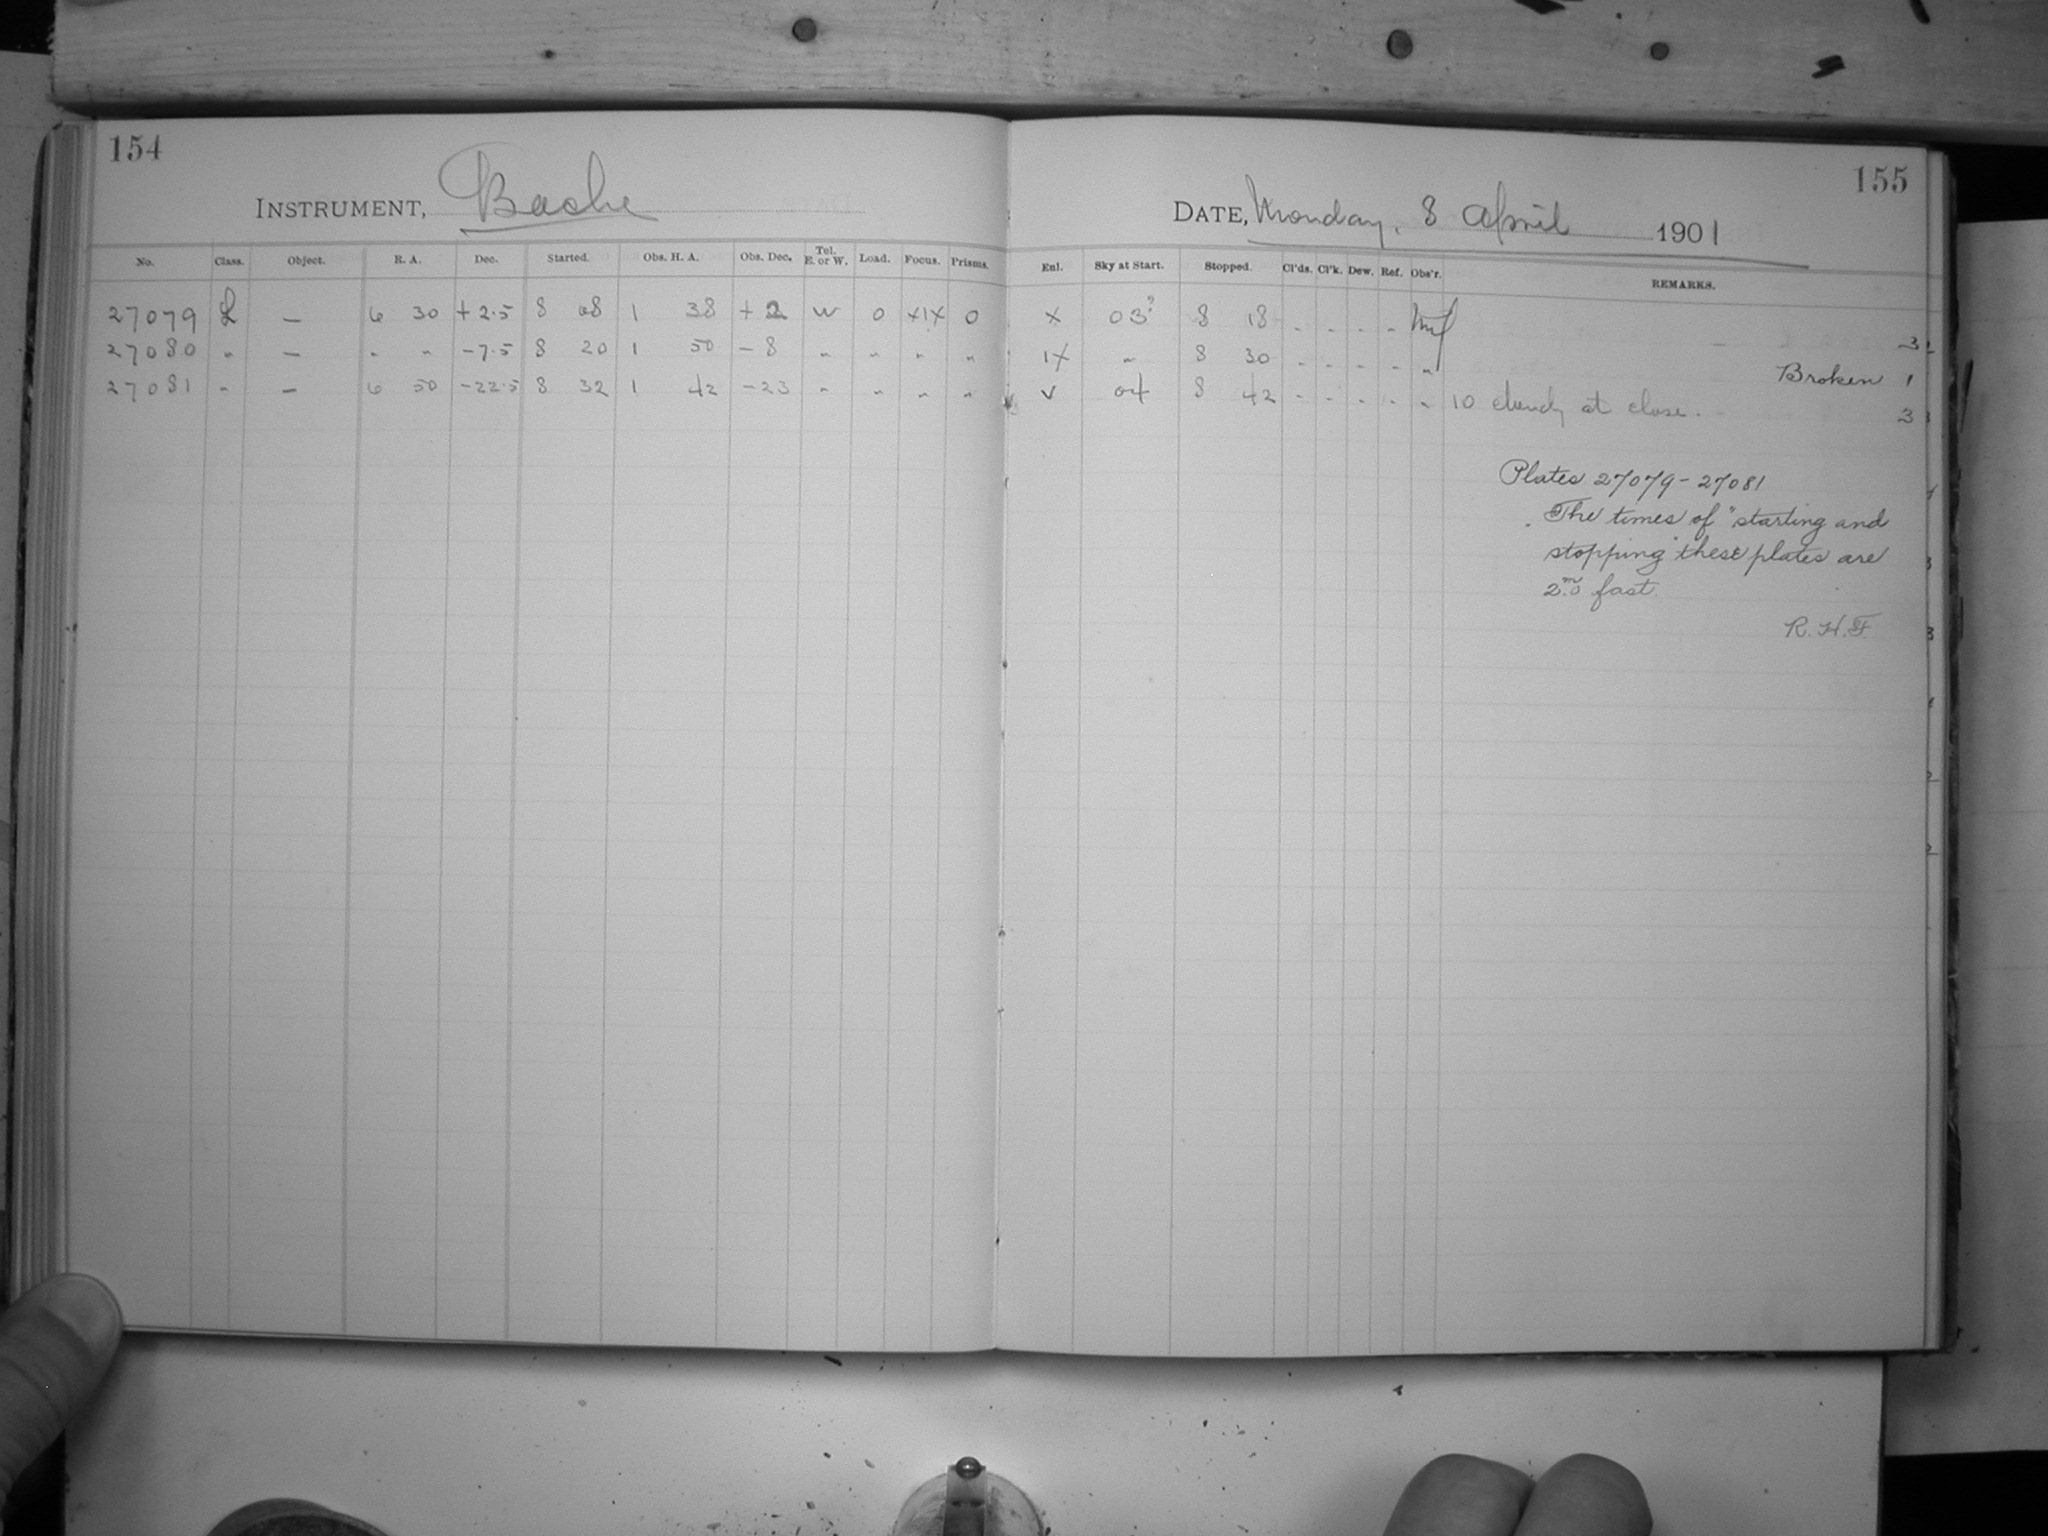 154
INSTRUMENT, Bache
No. Class. Object. R. A. Dec. Started. Obs. H. A. Obs. Dec. Tel. E. or W. Load. Focus. Prisms.
27079 L — 6 30 +2.5 8 08 1 38 +2 W 0 XIX 0
27080 " — " " -7.5 8 20 1 50 -8 " " " "
27081 " — 6 50 -22.5 8 32 1 42 -23 " " " "
155
DATE, Monday, 8 April 1901
Enl. Sky at Start. Stopped. Cl'ds. Cl'k. Dew. Ref. Obs'r. REMARKS.
X 03? 8 18 - - - - 3
IX " 8 30 - - - - " Broken 1
V 04 8 42 - - - - " 10 cloudy at close. 3
Plates 27079-27081
The times of "starting and
stopping" these plates are
2m.0 fast.
R. H. F.